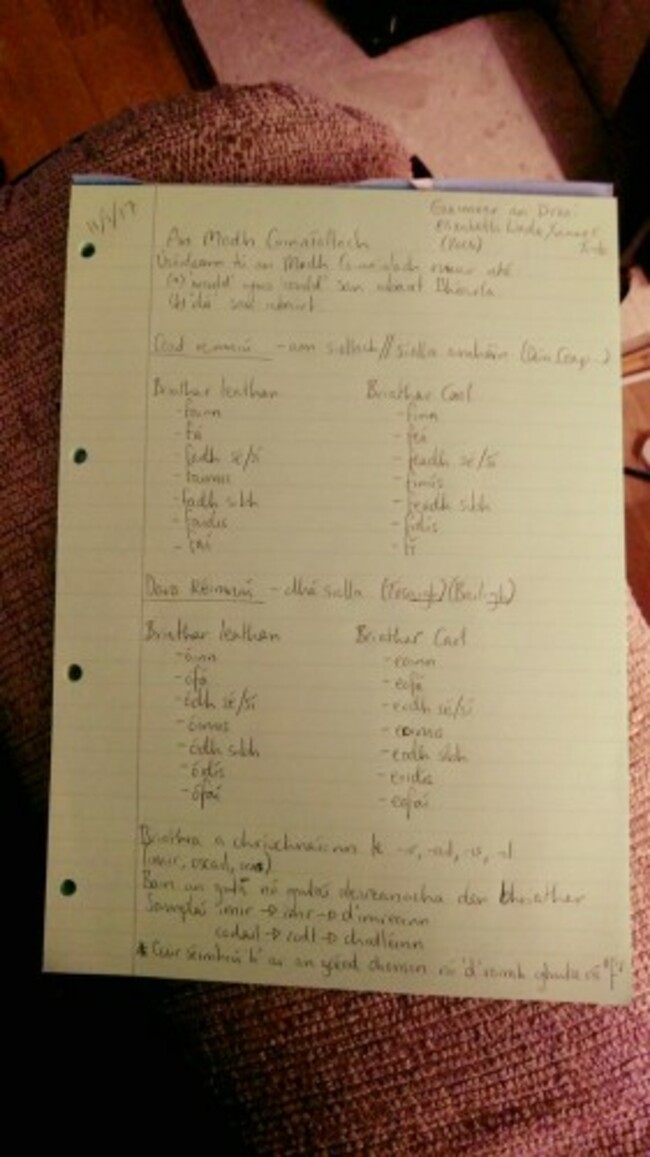 11/1/17
An Modh Coinníollach
Úsáidtear an Modh Coinníollach nuair atá
(a) 'would' 'could' san abairt Bhéarla
(b) 'dá' san abairt
Céad réimniú - aon siollach // siolla amháin (Dún, Ceap...)
Briathar leathan Briathar Caol
- fainn - finn
- fá - feá
- fadh sé/sí - feadh sé/sí
- faimis - fimis
- fadh sibh - feadh sibh
- faidis - fidis
- faí - fí
Dara Réimniú - dhá siolla (Tosaigh) (Bailigh)
Briathar leathan Briathar Caol
- óinn - eoinn
- ófá - eofá
- ódh sé/sí - eodh sé/sí
- óimis - eoimis
- ódh sibh - eodh sibh
- óidis - eoidis
- ófaí - eofaí
Briathra a chríochnaíonn le
(imir, oscail,
Bain an guta nó gutaí deireanacha den bhriathar
Samplaí imir → imr → d'imreoinn
codail → codl → chodlóinn
* Cuir séimhiú ar an gcéad chonsan nó 'd' roimh ghuta nó 'f'